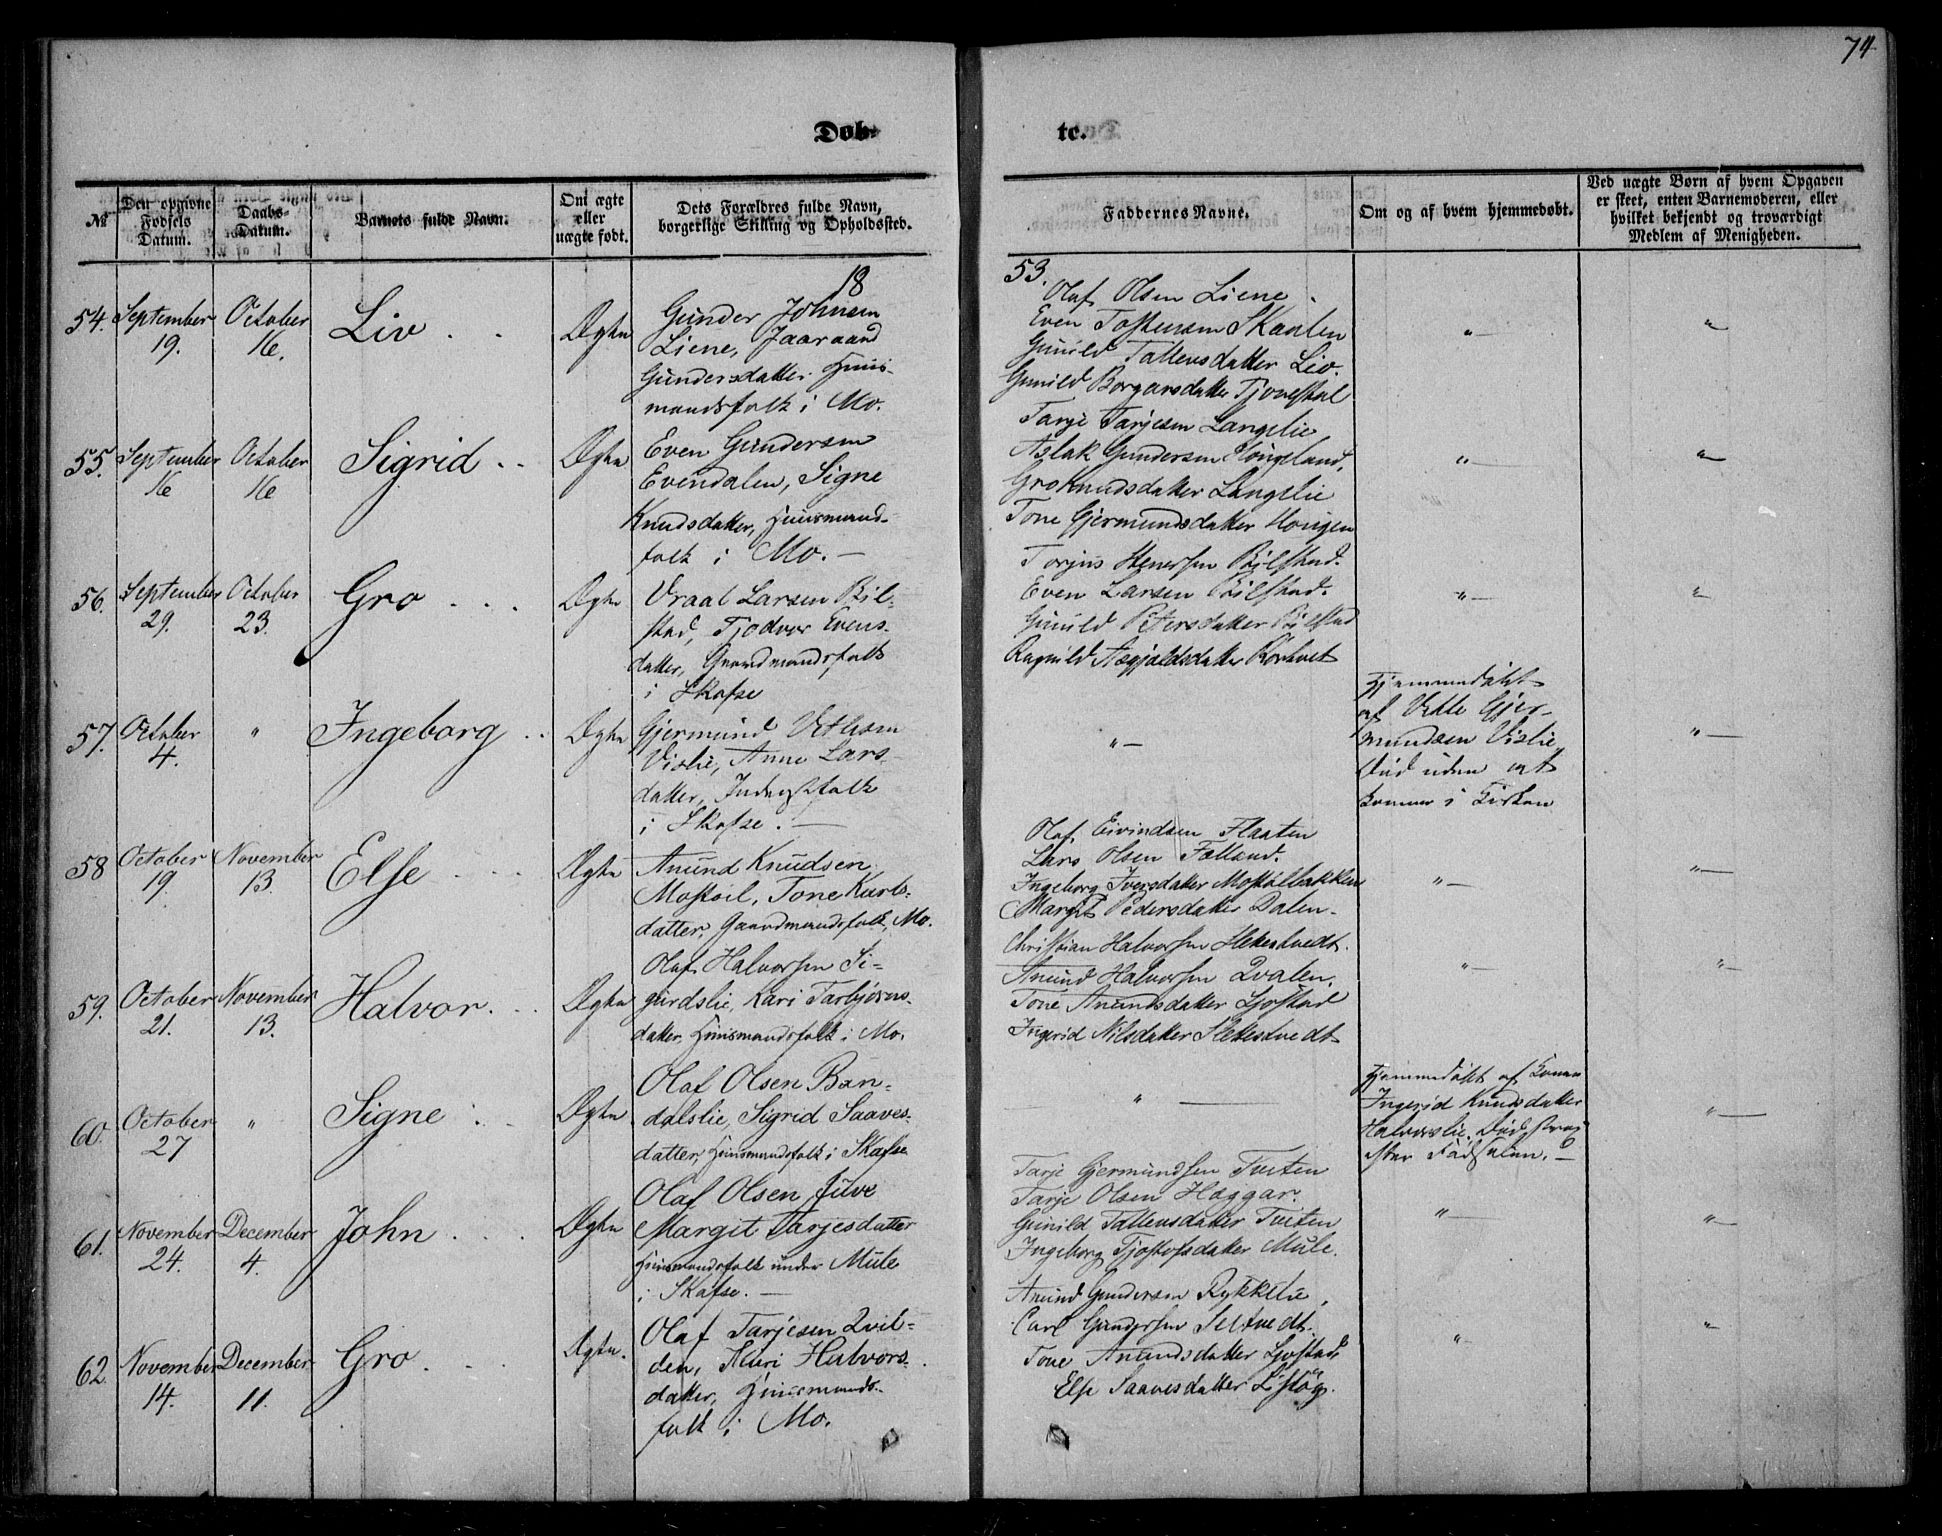 74
Døb-
te.
№
Den opgivne Fødsels Datum.
Daabs-Datum.
Barnets fulde Navn.
Om ægte eller uægte født.
Dets Forældres fulde Navn, borgerlige Stilling og Opholdssted.
Faddernes Navne.
Om og af hvem hjemmedøbt.
Ved uægte Børn af hvem Opgaven er skeet, enten Barnemoderen, eller hvilket bekjendt og troværdigt Medlem af Menigheden.
1853.
54. September 19. October 16. Liv Ægte
Gunder Johnsen
Liene, Jaaraand
Gundersdatter. Huus-
mandsfolk i Mo.
Olaf Olsen Liene
Even Tostensen Skaalen
Gunild Tallevsdatter Lio.
Gunild Borgarsdatter Tjonestal
" "
55. September 16 October 16 Sigrid Ægte
Even Gundersen
Evendalen, Signe
Knudsdatter, Huusmand-
folk i Mo.
Tarje Tarjesen Langelie
Aslak Gundersen
Gro Knudsdatter Langelie
Tone Gjermundsdatter Haugen
" "
56. September 29. October 23. Gro Ægte
Vraal Larsen Bil-
stad, Tjodvor Evens-
datter, Gaardmandsfolk
i Skafse
Torjus Stenersen Bilstad.
Even Larsen Bilstad.
Gunild Petersdatter Bilstad
Ragnild
" "
57. October 4. " Ingeborg Ægte
Gjermund Vetlesen
Vislie, Anne Lars-
datter, Inderstfolk
i Skafse.
"
Hjemmedøbt
af Vetle Gjer-
mundsen Vislie,
Død uden at
komme i Kirken
"
58 October 19. November 13. Else Ægte
Anund Knudsen
Mostøil, Tone Karls-
datter, Gaardmandsfolk, Mo.
Olaf Eivindsen Flaaten
Lars Olsen Folland.
Ingeborg Iversdatter Mostølbakken
Margit Pedersdatter Dalen.
" "
59. October 21. November 13. Halvor. Ægte
Olaf Halvorsen Si-
gurdslie, Kari Tarbjørns-
datter, Huusmandsfolk i Mo.
Christian Halvorsen
Anund Halvorsen Qvalen.
Tone Anundsdatter Ljostad
Ingerid Nilsdatter
" "
60. October 27 " Signe Ægte
Olaf Olsen Ban-
dalslie, Sigrid Saaves-
datter, Huusmandsfolk i Skafse
"
Hjemmedøbt af Konen
Ingerid Knudsdatter
Halvorslie. Død strax
efter Fødselen.
"
61. November 24. December 4. John Ægte
Olaf Olsen Juve
Margit Tarjesdatter
Huusmandsfolk under Mule
i Skafse.
Tarje Gjermundsen Tveten
Tarje Olsen Hæggar.
Gunild Tallevsdatter Tveten
Ingeborg Tjostofsdatter Mule.
" "
62 November 14. December 11. Gro Ægte.
Olaf Tarjesen Qvil-
den, Kari Halvors-
datter, Huusmands-
folk i Mo.
Anund Gundersen Rykkelie
Carl Gundersen
Tone Anundsdatter Ljostad,
Else Saavesdatter
" "